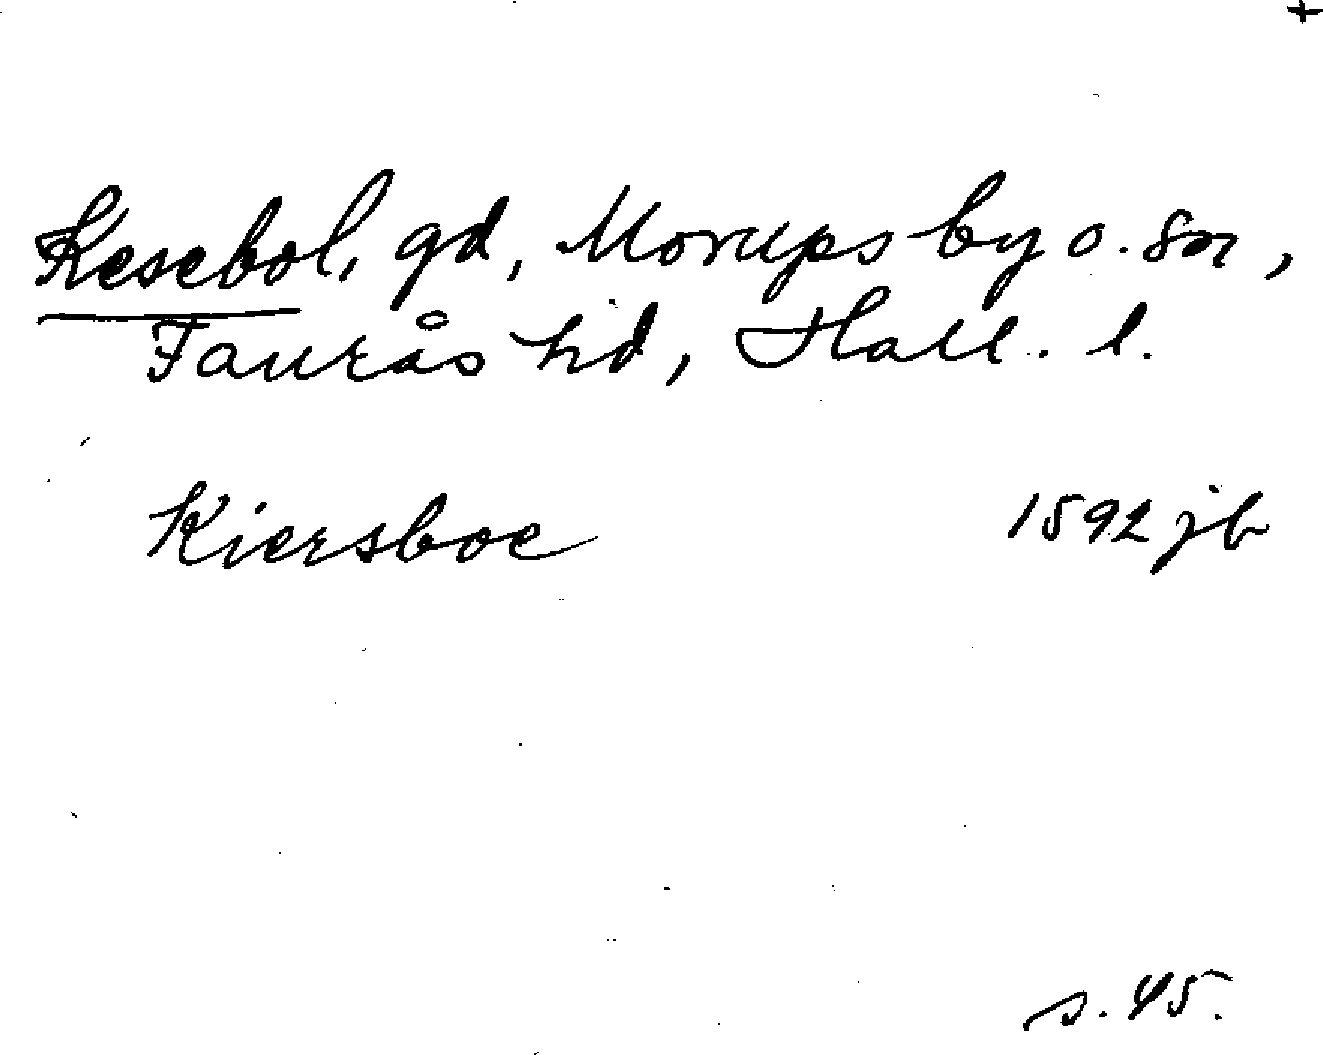 +
Kesebol, gd, Morups by o. sn,
Faurås hd, Hall. l.
Kiersboe 1592 jb
s. 45.